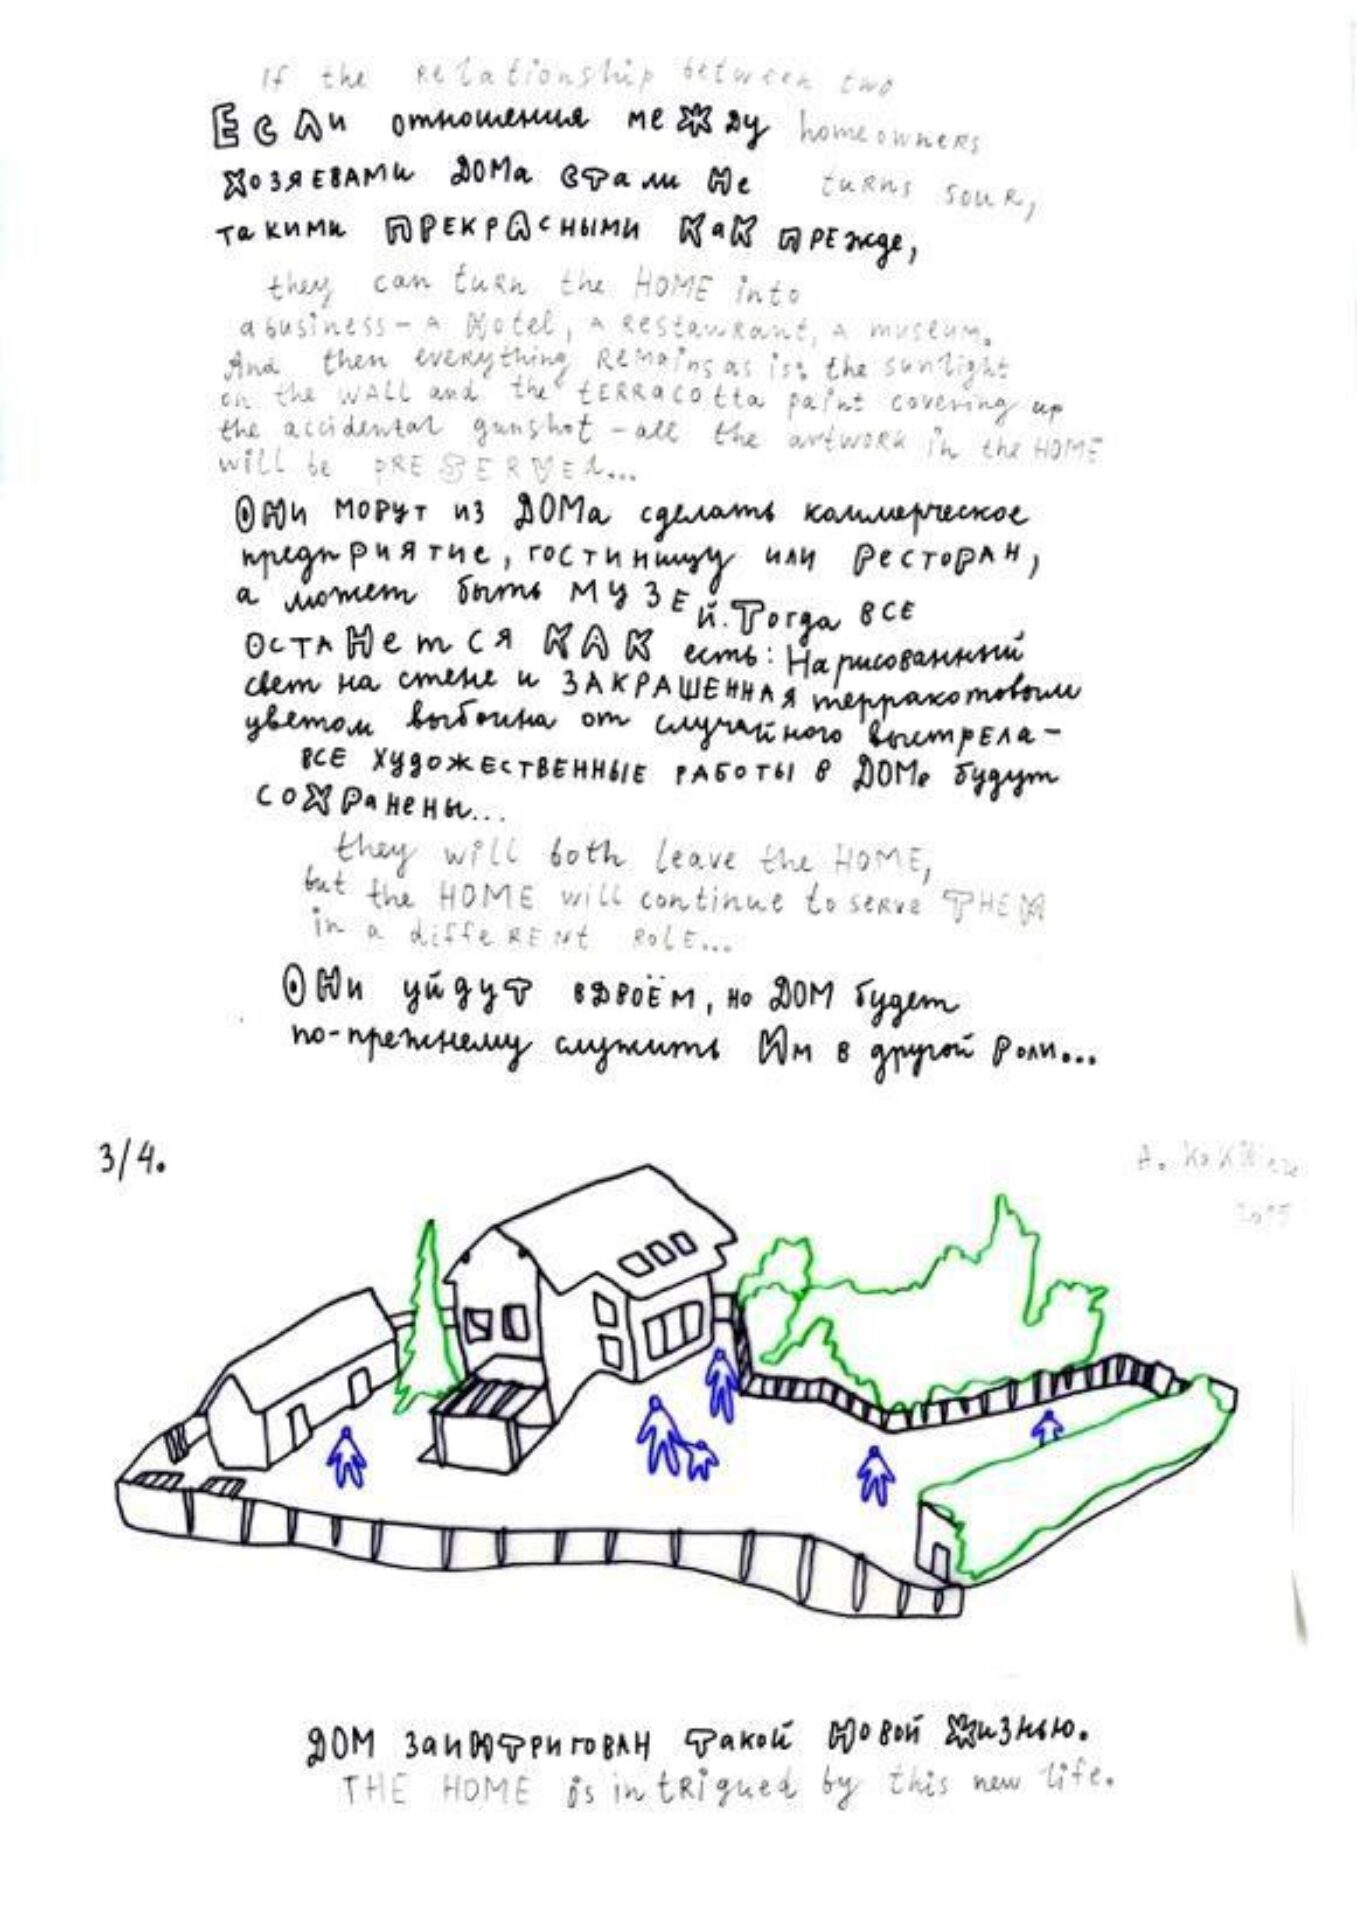 If the Relationship between two
Если отношения между homeowners
хозяевами ДОМа стали не turns sour,
такими ПРЕКРАсными КаК ПРЕжде,
they can turn the HOME into
a business – A Hotel, A Restaurant, A museum.
And then everything Remains as is: the sunlight
on the WALL and the tERRAcotta paint covering up
the accidental gunshot – all the artwork in the HOME
will be PRESERVEd...
ОНи могут из ДОМа сделать коммерческое
предприятие, гостиницу или Ресторан,
а может быть МУЗЕй. Тогда ВСЕ
ОСТАНется КАК есть: Нарисованный
свет на стене и ЗАКРАШЕННАЯ терракотовым
цветом выбоина от случайного выстрЕла –
ВСЕ ХУдОЖЕСТВЕННЫЕ РАБОТЫ в ДОМе будут
СОХРаНены...
they will both leave the HOME,
but the HOME will continue to serve THEM
in a diffeRENt RolE...
ОНи уйдут вДВОЁМ, но ДОМ будет
по-прежнему служить Им в другой Роли...
3/4.
2015
ДОМ ЗаиНТРигоВАН Такой Новой Жизнью.
THE HOME is intRigued by this new life.